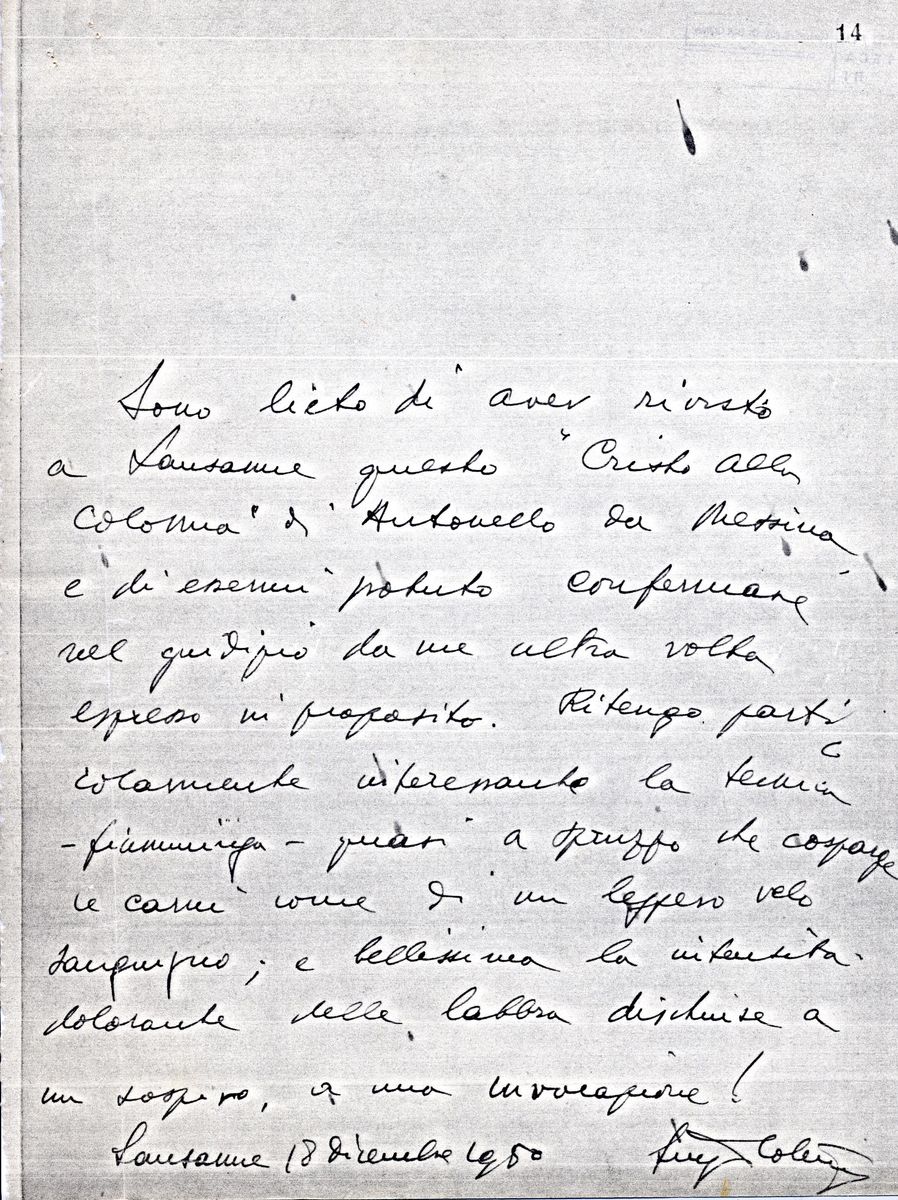 14
Sono lieto di aver rivisto
a Lausanne questo "Cristo alla
colonna" di Antonello da Messina
e di essermi potuto confermare
nel giudizio da me altra volta
espresso in proposito. Ritengo parti
colarmente interessante la tecnica
- fiamminga - quasi a spruzzo che cosparge
le carni come di un leggero velo
sanguigno; e bellissima la intensità
dolorante delle labbra dischiuse a
un sospiro, a una invocazione!
Lausanne 18 dicembre 1950